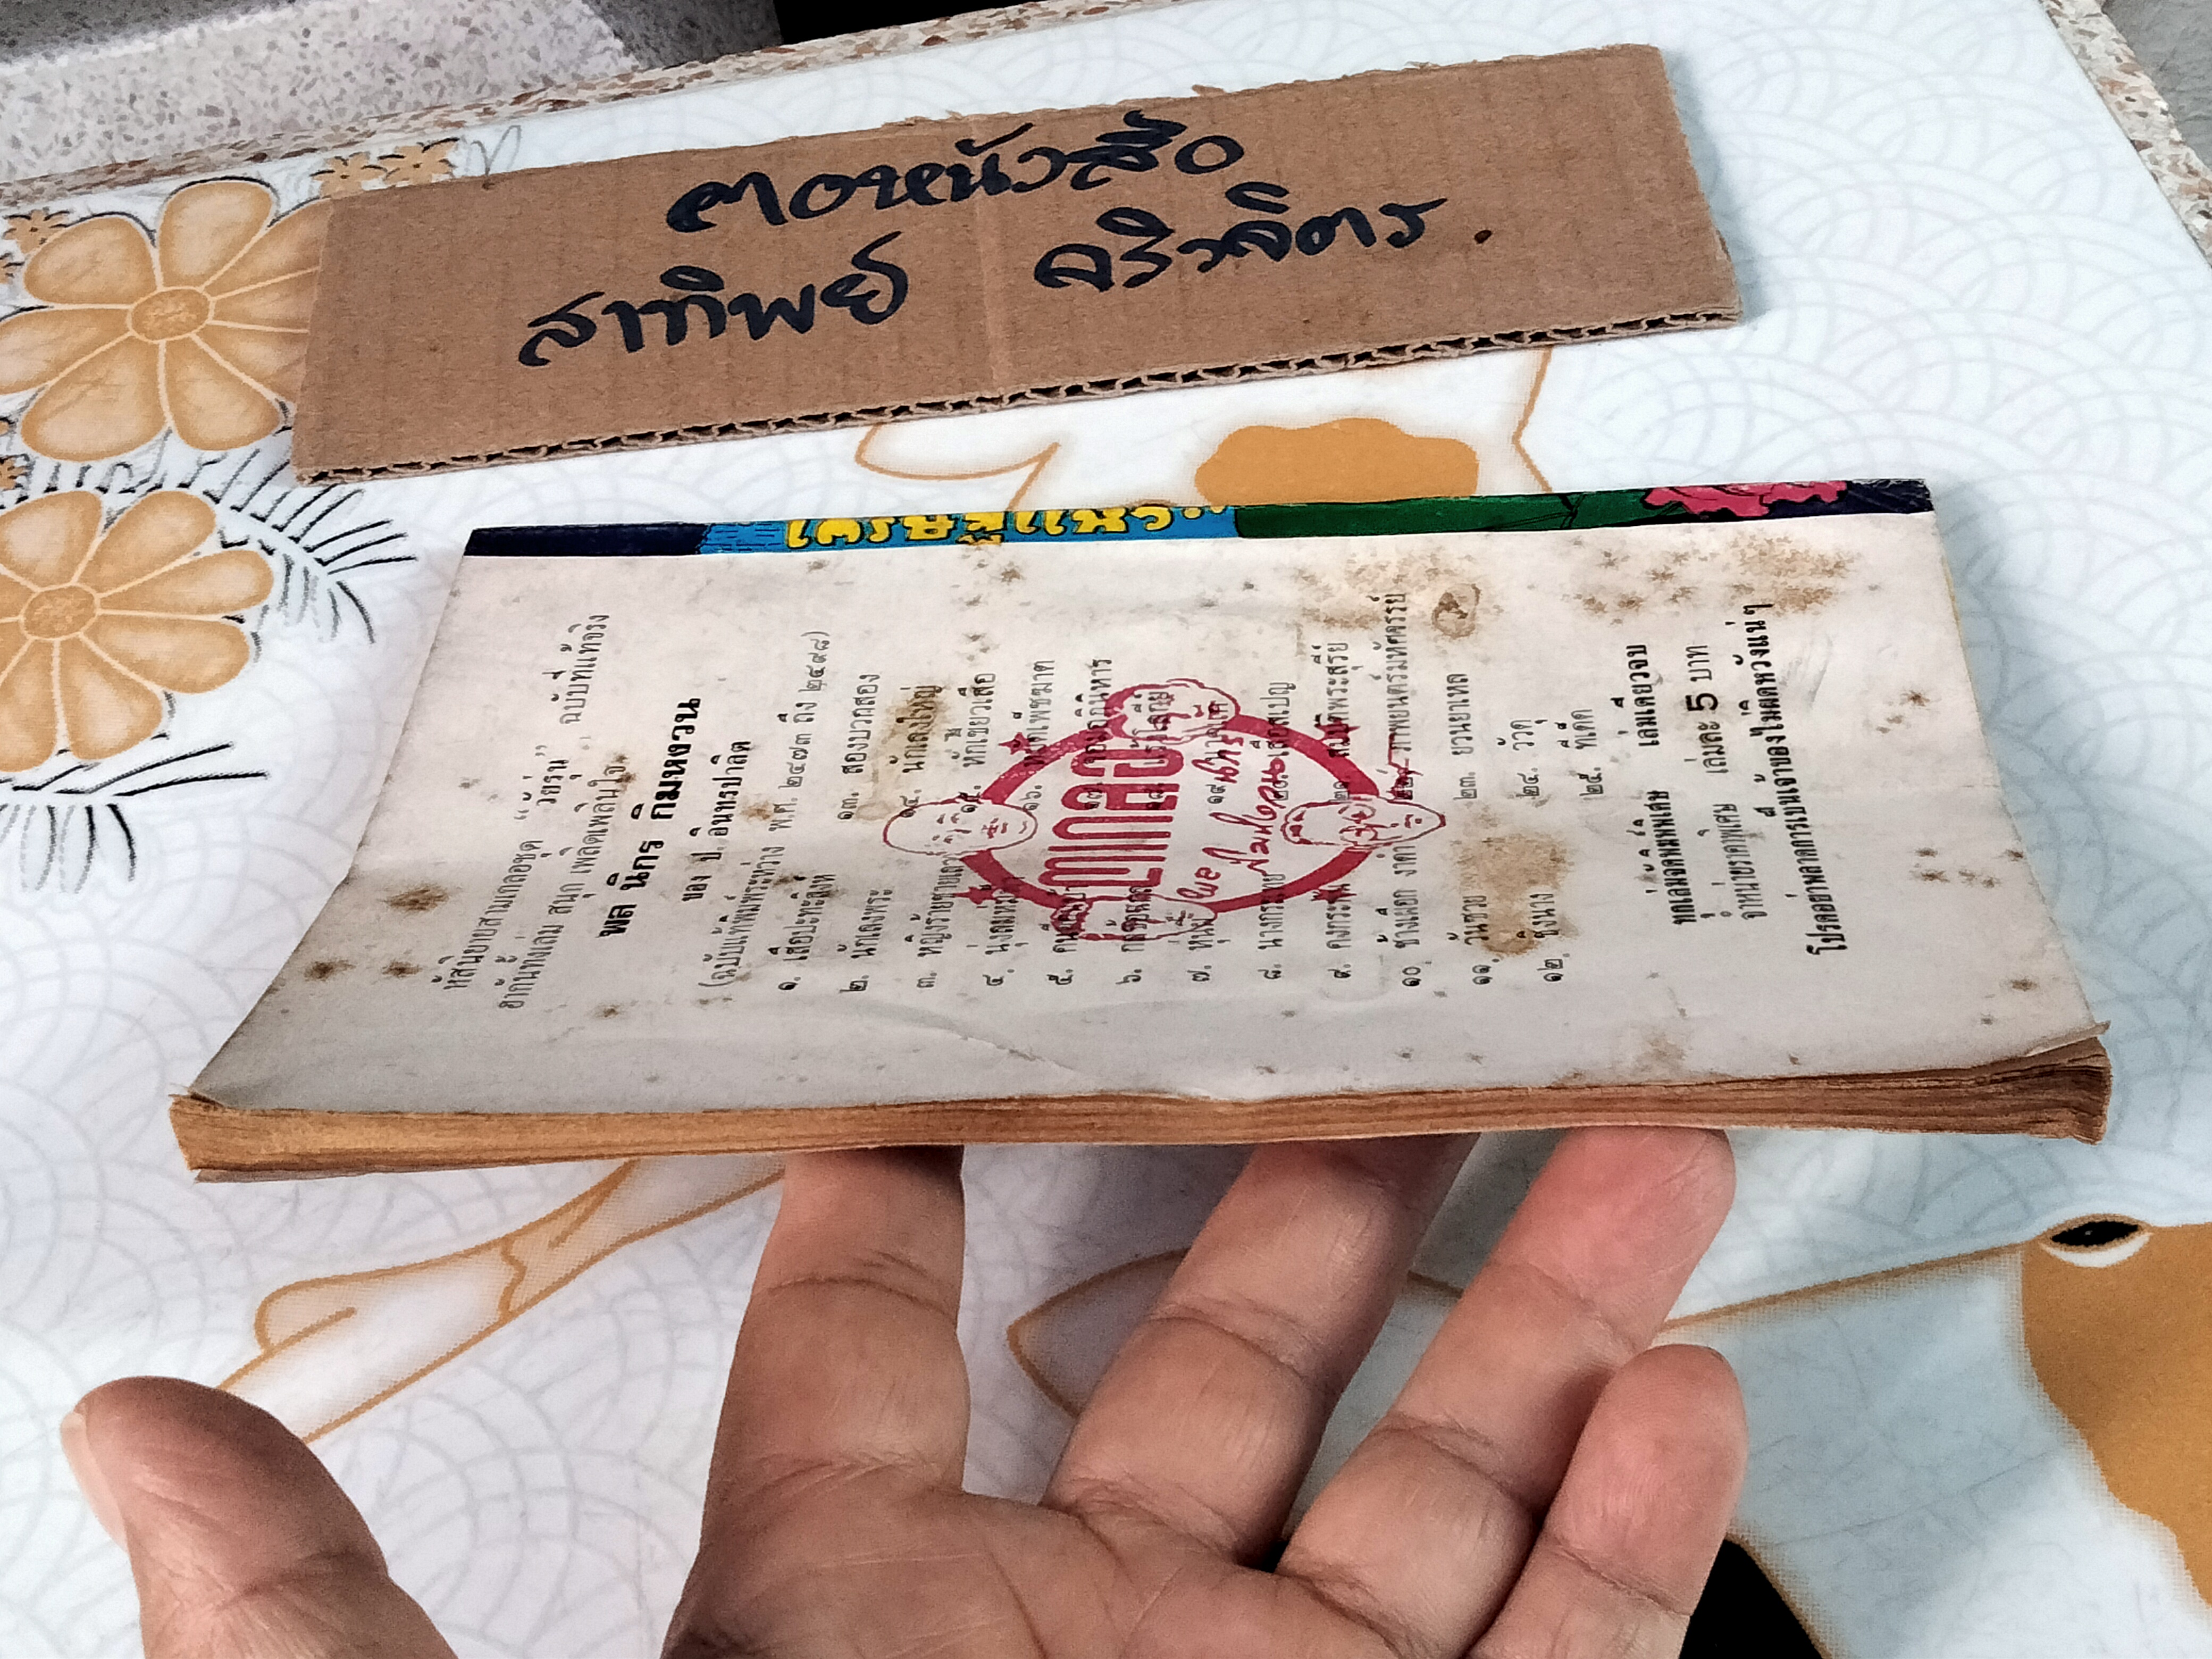 คอหนังสือ
สาทิพย์ ศริวจิตร.
หัสนิยายสามเกลอชุด "วัยรุ่น" ฉบับที่แท้จริง
ฮากันทั้งเล่ม สนุก เพลิดเพลินใจ
พล นิกร กิมหงวน
ของ ป. อินทรปาลิต
(ฉบับแท้พิมพ์ระหว่าง พ.ศ. ๒๔๗๓ ถึง ๒๔๙๘)
๑. เสือปะทะสิงห์
๒. นักเลงพระ
๓. หญิงร้ายชายเลว
๔.
๕.
๖.
๗.
๘. นางกรวย
๙. คงกระพัน
๑๐. ช้างเผือก งาดำ
๑๑. วันซวย
๑๒. ชิงนาง
๑๓. สองบวกสอง
๑๔. นักเลงใหญ่
๑๕. หักเขี้ยวเสือ
๑๖. หมัดเพชฌฆาต
๑๗. จอมอภินิหาร
๑๘.
๑๙.
๒๐. เลือดสเปญ
๒๑. สมบัติพระสุรีย์
๒๒. ภาพยนตร์มหัศจรรย์
๒๓. ยวนยาเหล
๒๔. วัววุ
๒๕. ทีเด็ด
ทุกเล่มจัดพิมพ์พิเศษ เล่มเดียวจบ
จำหน่ายราคาพิเศษ เล่มละ 5 บาท
โปรดอย่าพลาดการเป็นเจ้าของไม่ผิดหวังแน่ๆ
สามเกลอ